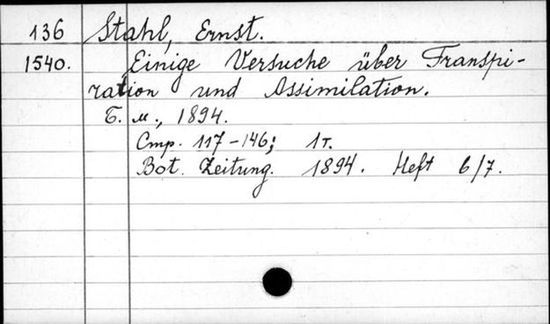 136 Stahl, Ernst.
1540. Einige Versuche über Transpi-
ration und Assimilation.
Б. м., 1894.
Стр. 117-146; 1т.
Bot. Zeitung. 1894. Heft 6/7.